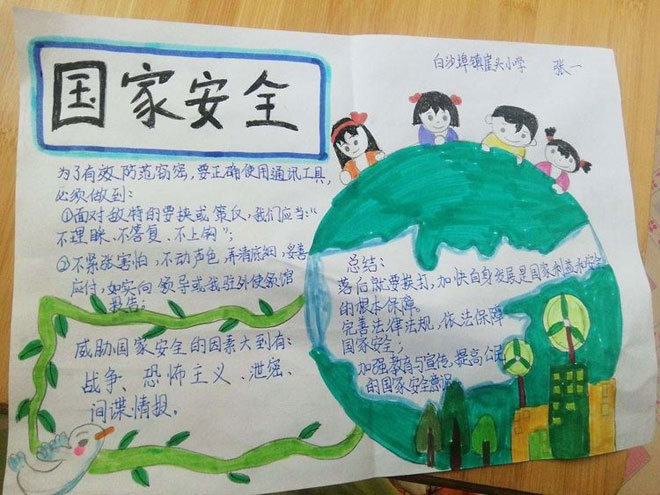 国家安全
白沙埠镇崖头小学 张一
为了有效防范窃密，要正确使用通讯工具，
必须做到：
①面对敌特的要挟或策反，我们应当："
不理睬、不答复、不上钩"；
②不紧张害怕，不动声色，弄清底细，妥善
应付，如实向领导或我驻外使领馆
报告；
威胁国家安全的因素大到有：
战争、恐怖主义、泄密、
间谍情报。
总结：
落后就要挨打，加快自身发展是国家利益和安全
的根本保障。
完善法律法规，依法保障
国家安全；
加强教育与宣传，提高公民
的国家安全意识